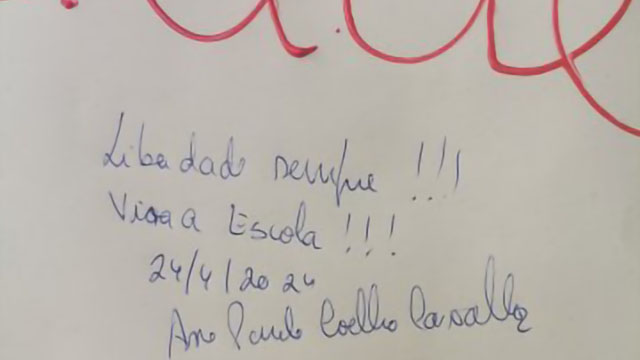 Liberdade sempre !!!
Viva a Escola !!!
24/4/2024
Ana Paula Coelho Carvalho